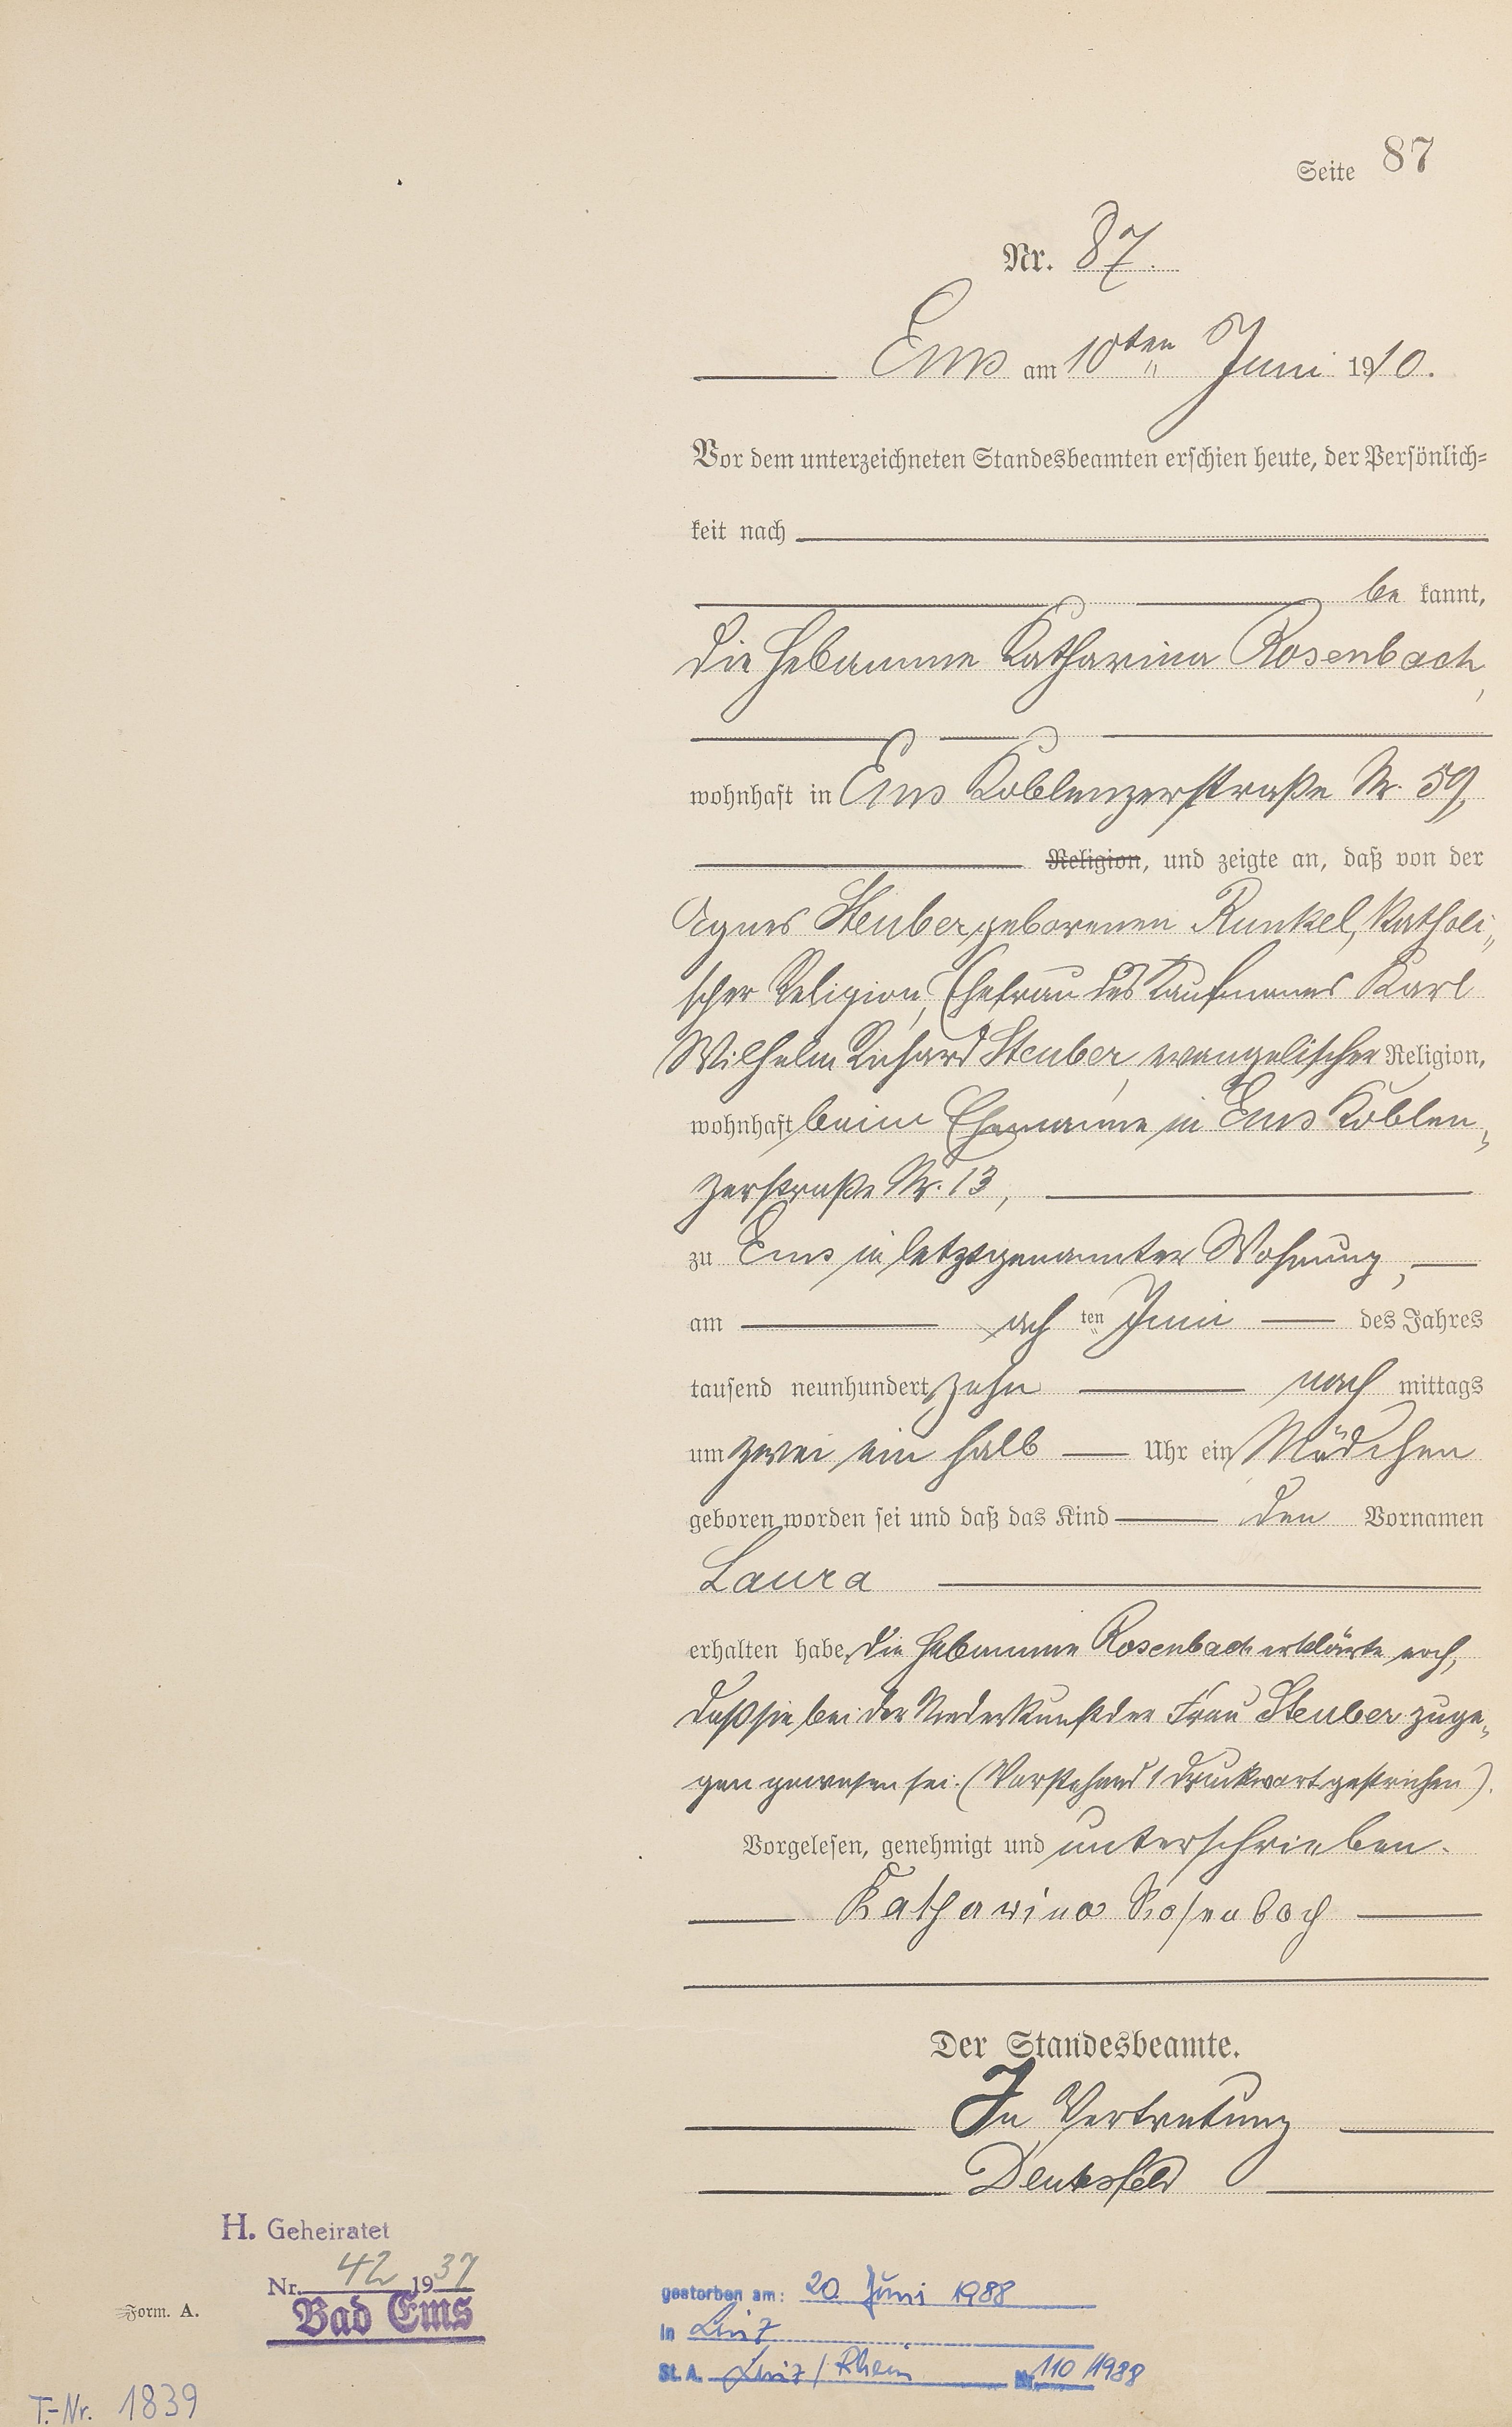 Seite 87
Nr. 87.
Ems am 10ten Juni 1910.
Vor dem unterzeichneten Standesbeamten erschien heute, der Persönlich=
keit nach
be kannt,
die Hebamme Katharina Rosenbach,
wohnhaft in Ems Koblenzerstraße Nr. 59,
Religion, und zeigte an, daß von der
Agnes Steuber geborenen Runkel, katholi„
scher Religion, Ehefrau des Kaufmannes Karl
Wilhelm Richard Steuber, evangelischer Religion,
wohnhaft beim Ehemanne in Ems Koblen„
zerstraße Nr. 13,
zu Ems in letztgenannter Wohnung,
am ach ten Juni des Jahres
tausend neunhundert zehn nach mittags
um zwei ein halb Uhr ein Mädchen
geboren worden sei und daß das Kind den Vornamen
Laura
erhalten habe. Die Hebamme Rosenbach erklärte noch,
daß sie bei der Niederkunft der Frau Steuber zuge„
gen gewesen sei. (Vorstehend 1 Druckwort gestrichen).
Vorgelesen, genehmigt und unterschrieben.
Katharina Rosenbach
Der Standesbeamte.
In Vertretung
H. Geheiratet
Nr. 42 1937
Bad Ems
Form. A.
gestorben am: 20. Juni 1988
in Linz
St. A. Linz/Rhein Nr. 110/1988
T.-Nr. 1839